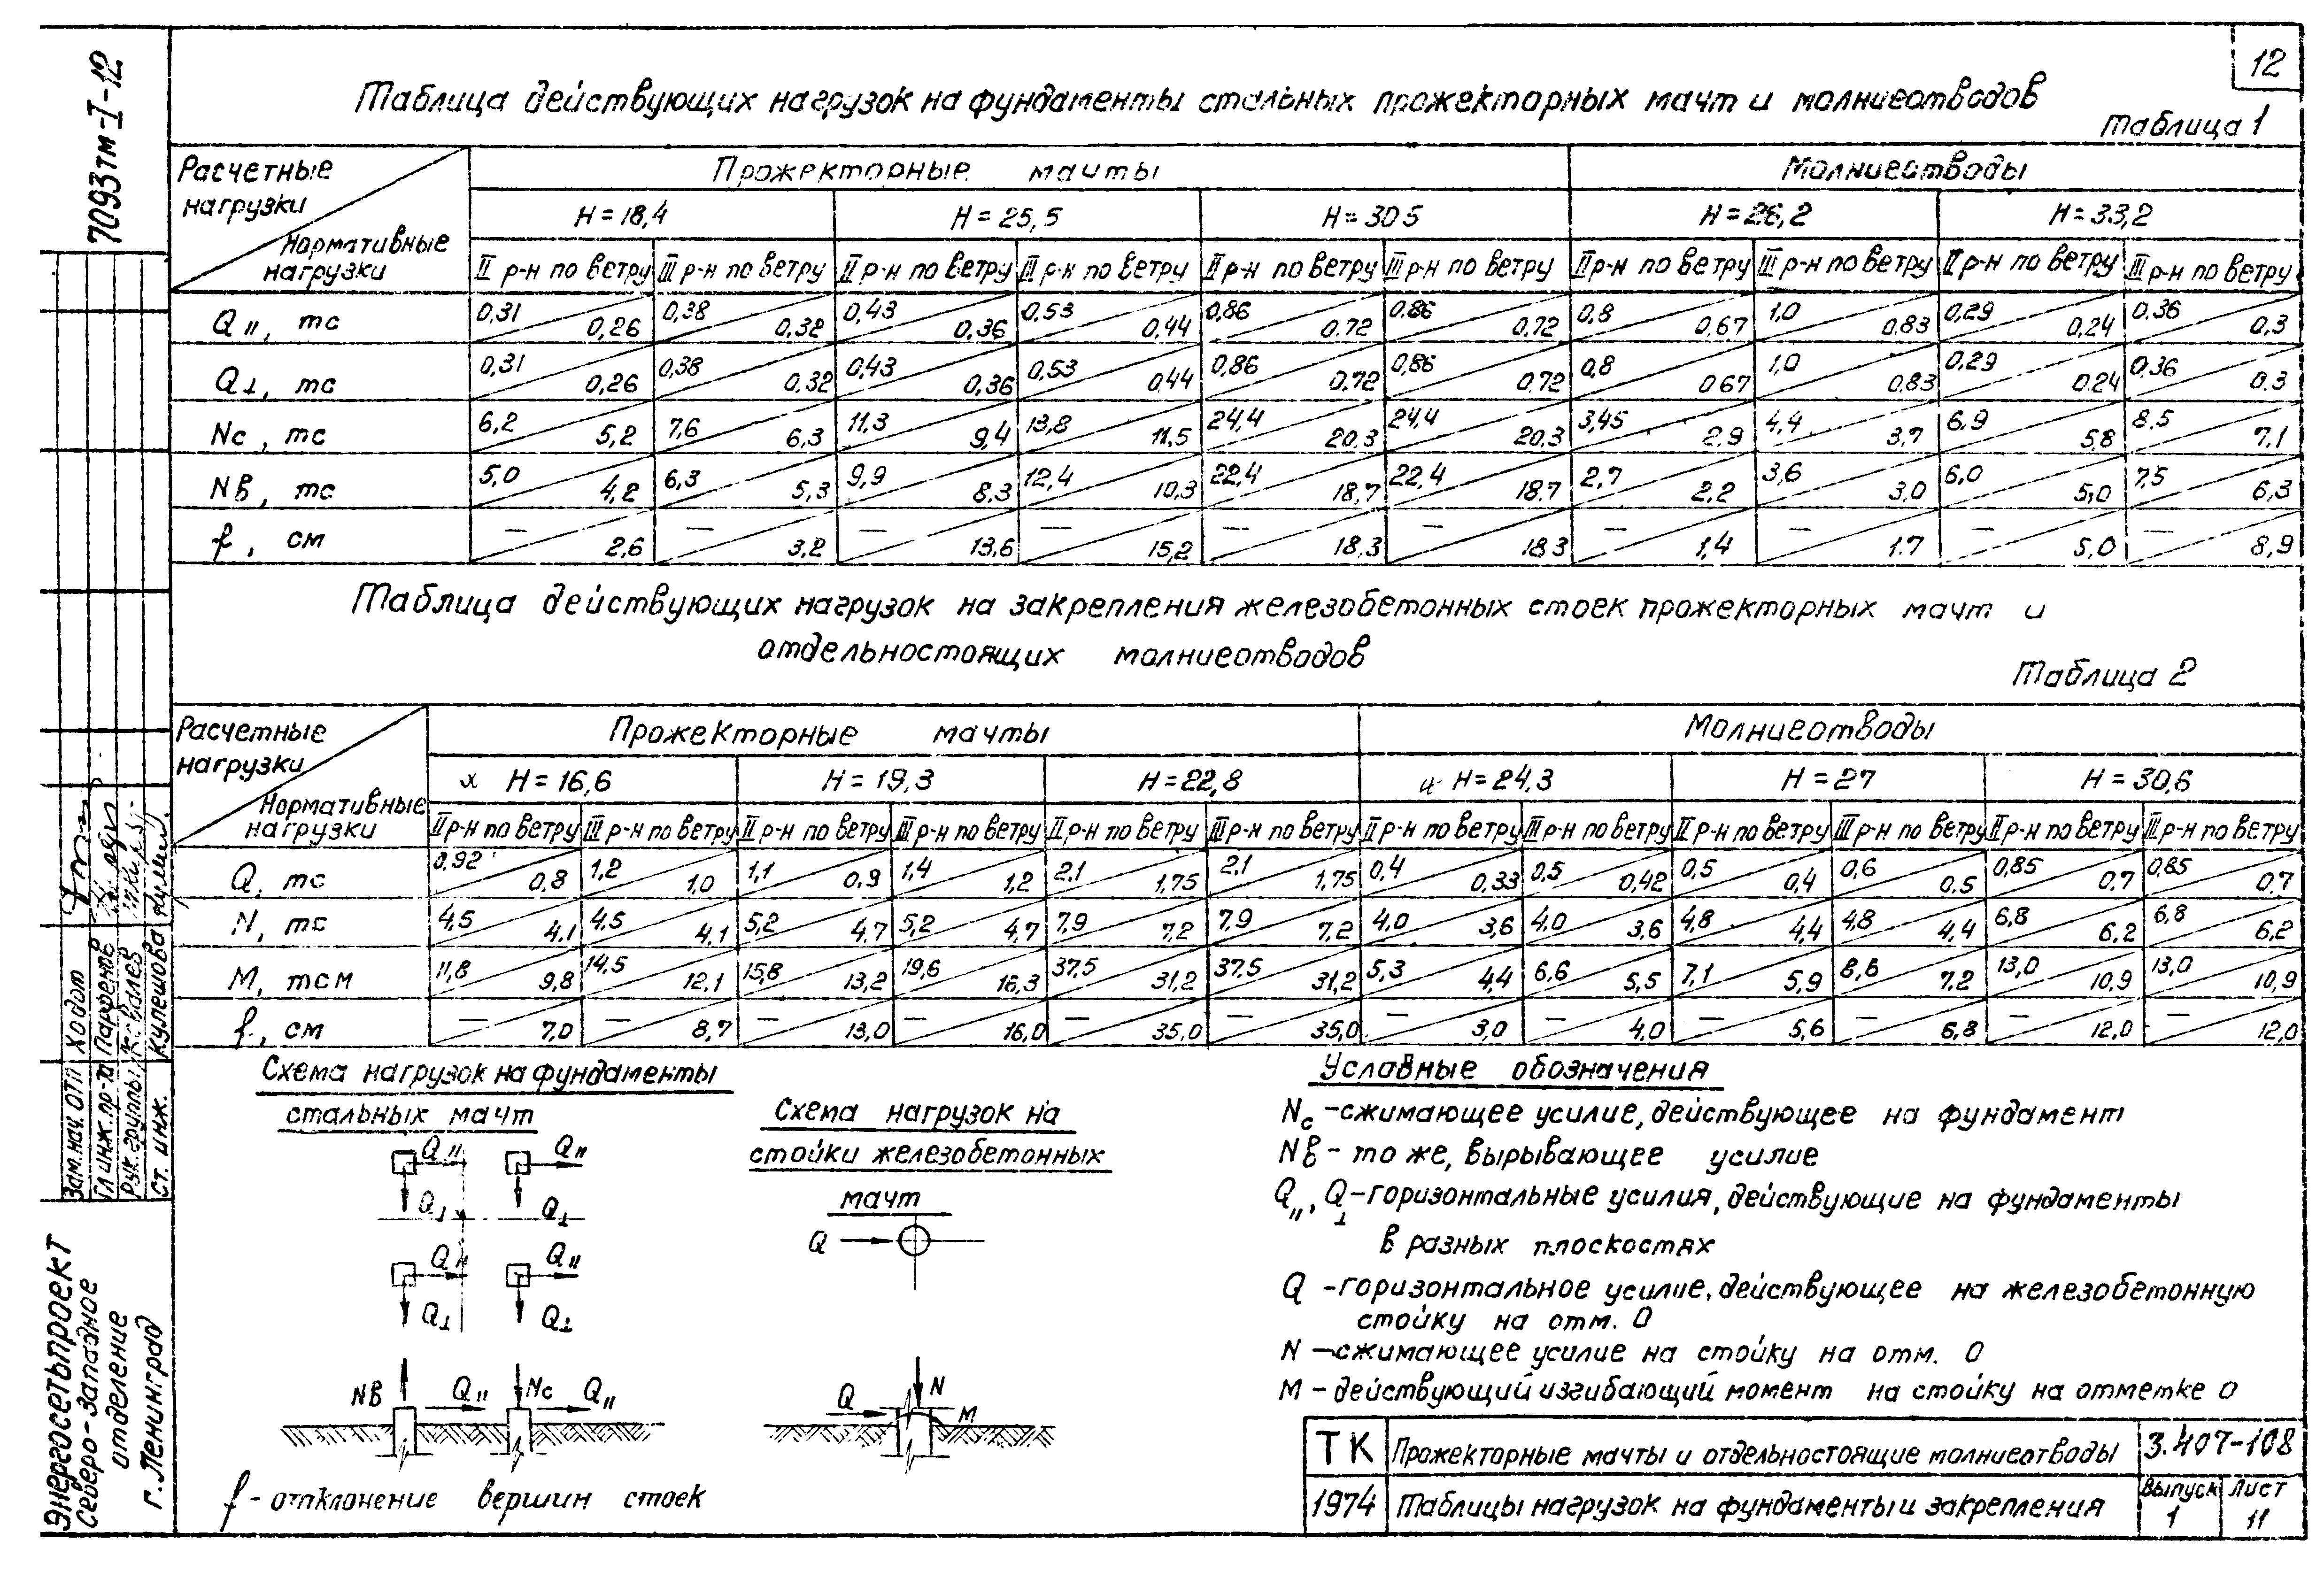 12
7093тм-I-12
Таблица действующих нагрузок на фундаменты стальных прожекторных мачт и молниеотводов
Таблица 1
Расчетные нагрузки
Нормативные нагрузки
Прожекторные мачты
Молниеотводы
H = 18,4 H = 25,5 H = 30 5 H = 26,2 H = 33,2
II р-н по ветру III р-н по ветру II р-н по ветру III р-н по ветру II р-н по ветру III р-н по ветру II р-н по ветру III р-н по ветру II р-н по ветру III р-н по ветру
Q॥, тс 0,31 0,26 0,38 0,32 0,43 0,36 0,53 0,44 0,86 0.72 0.86 0.72 0,8 0,67 1,0 0,83 0,29 0,24 0,36 0,3
Q⊥, тс 0,31 0,26 0,38 0,32 0,43 0,36 0,53 0,44 0,86 0,72 0,86 0.72 0,8 0,67 1,0 0.83 0,29 0.24 0,36 0.3
Nc, тс 6,2 5,2 7,6 6,3 11,3 9,4 13,8 11,5 24,4 20.3 24,4 20,3 3,45 2.9 4,4 3,7 6,9 5,8 8.5 7,1
Nв, тс 5,0 4,2 6,3 5,3 9,9 8.3 12,4 10,3 22,4 18,7 22,4 18,7 2,7 2,2 3,6 3,0 6,0 5,0 7,5 6,3
f, см — 2,6 — 3,2 — 13,6 — 15,2 — 18,3 — 18 3 — 1,4 — 1.7 — 5,0 — 8,9
Таблица действующих нагрузок на закрепления железобетонных стоек прожекторных мачт и
отдельностоящих молниеотводов
Таблица 2
Расчетные нагрузки
Нормативные нагрузки
Прожекторные мачты
Молниеотводы
H = 16,6 H = 19,3 H = 22,8 H = 24,3 H = 27 H = 30,6
II р-н по ветру III р-н по ветру II р-н по ветру III р-н по ветру II р-н по ветру III р-н по ветру II р-н по ветру III р-н по ветру II р-н по ветру III р-н по ветру II р-н по ветру III р-н по ветру
Q, тс 0,92 0,8 1,2 1,0 1,1 0,9 1,4 1,2 2,1 1,75 2,1 1,75 0,4 0,33 0,5 0,42 0,5 0,4 0,6 0,5 0,85 0,7 0,85 0,7
N, тс 4,5 4,1 4,5 4,1 5,2 4,7 5,2 4,7 7,9 7,2 7,9 7,2 4,0 3,6 4,0 3,6 4,8 4,4 4,8 4,4 6,8 6,2 6,8 6,2
M, тсм 11,8 9,8 14,5 12,1 15,8 13,2 19,6 16,3 37,5 31,2 37,5 31,2 5,3 4,4 6,6 5,5 7,1 5,9 8,6 7,2 13,0 10,9 13,0 10,9
f, см — 7,0 — 8,7 — 13,0 — 16,0 — 35,0 — 35,0 — 3,0 — 4,0 — 5,6 — 6,8 — 12,0 — 12,0
Схема нагрузок на фундаменты
стальных мачт
Q॥ Q॥
Q⊥ Q⊥
Q॥ Q॥
Q⊥ Q⊥
Nв Q॥ Nc Q॥
f - отклонение вершин стоек
Схема нагрузок на
стойки железобетонных
мачт
Q
Q N M
Условные обозначения
Nc - сжимающее усилие, действующее на фундамент
Nв - то же, вырывающее усилие
Q॥, Q⊥ - горизонтальные усилия, действующие на фундаменты
в разных плоскостях
Q - горизонтальное усилие, действующее на железобетонную
стойку на отм. 0
N - сжимающее усилие на стойку на отм. 0
M - действующий изгибающий момент на стойку на отметке 0
ТК Прожекторные мачты и отдельностоящие молниеотводы 3.407-108
1974 Таблицы нагрузок на фундаменты и закрепления Выпуск 1 Лист 11
Зам. нач. ОТП Ходот
Гл. инж. пр-та Парфенов
Рук. группы Ковалев
Ст. инж. Кулешова
Энергосетьпроект
Северо-западное
отделение
г. Ленинград